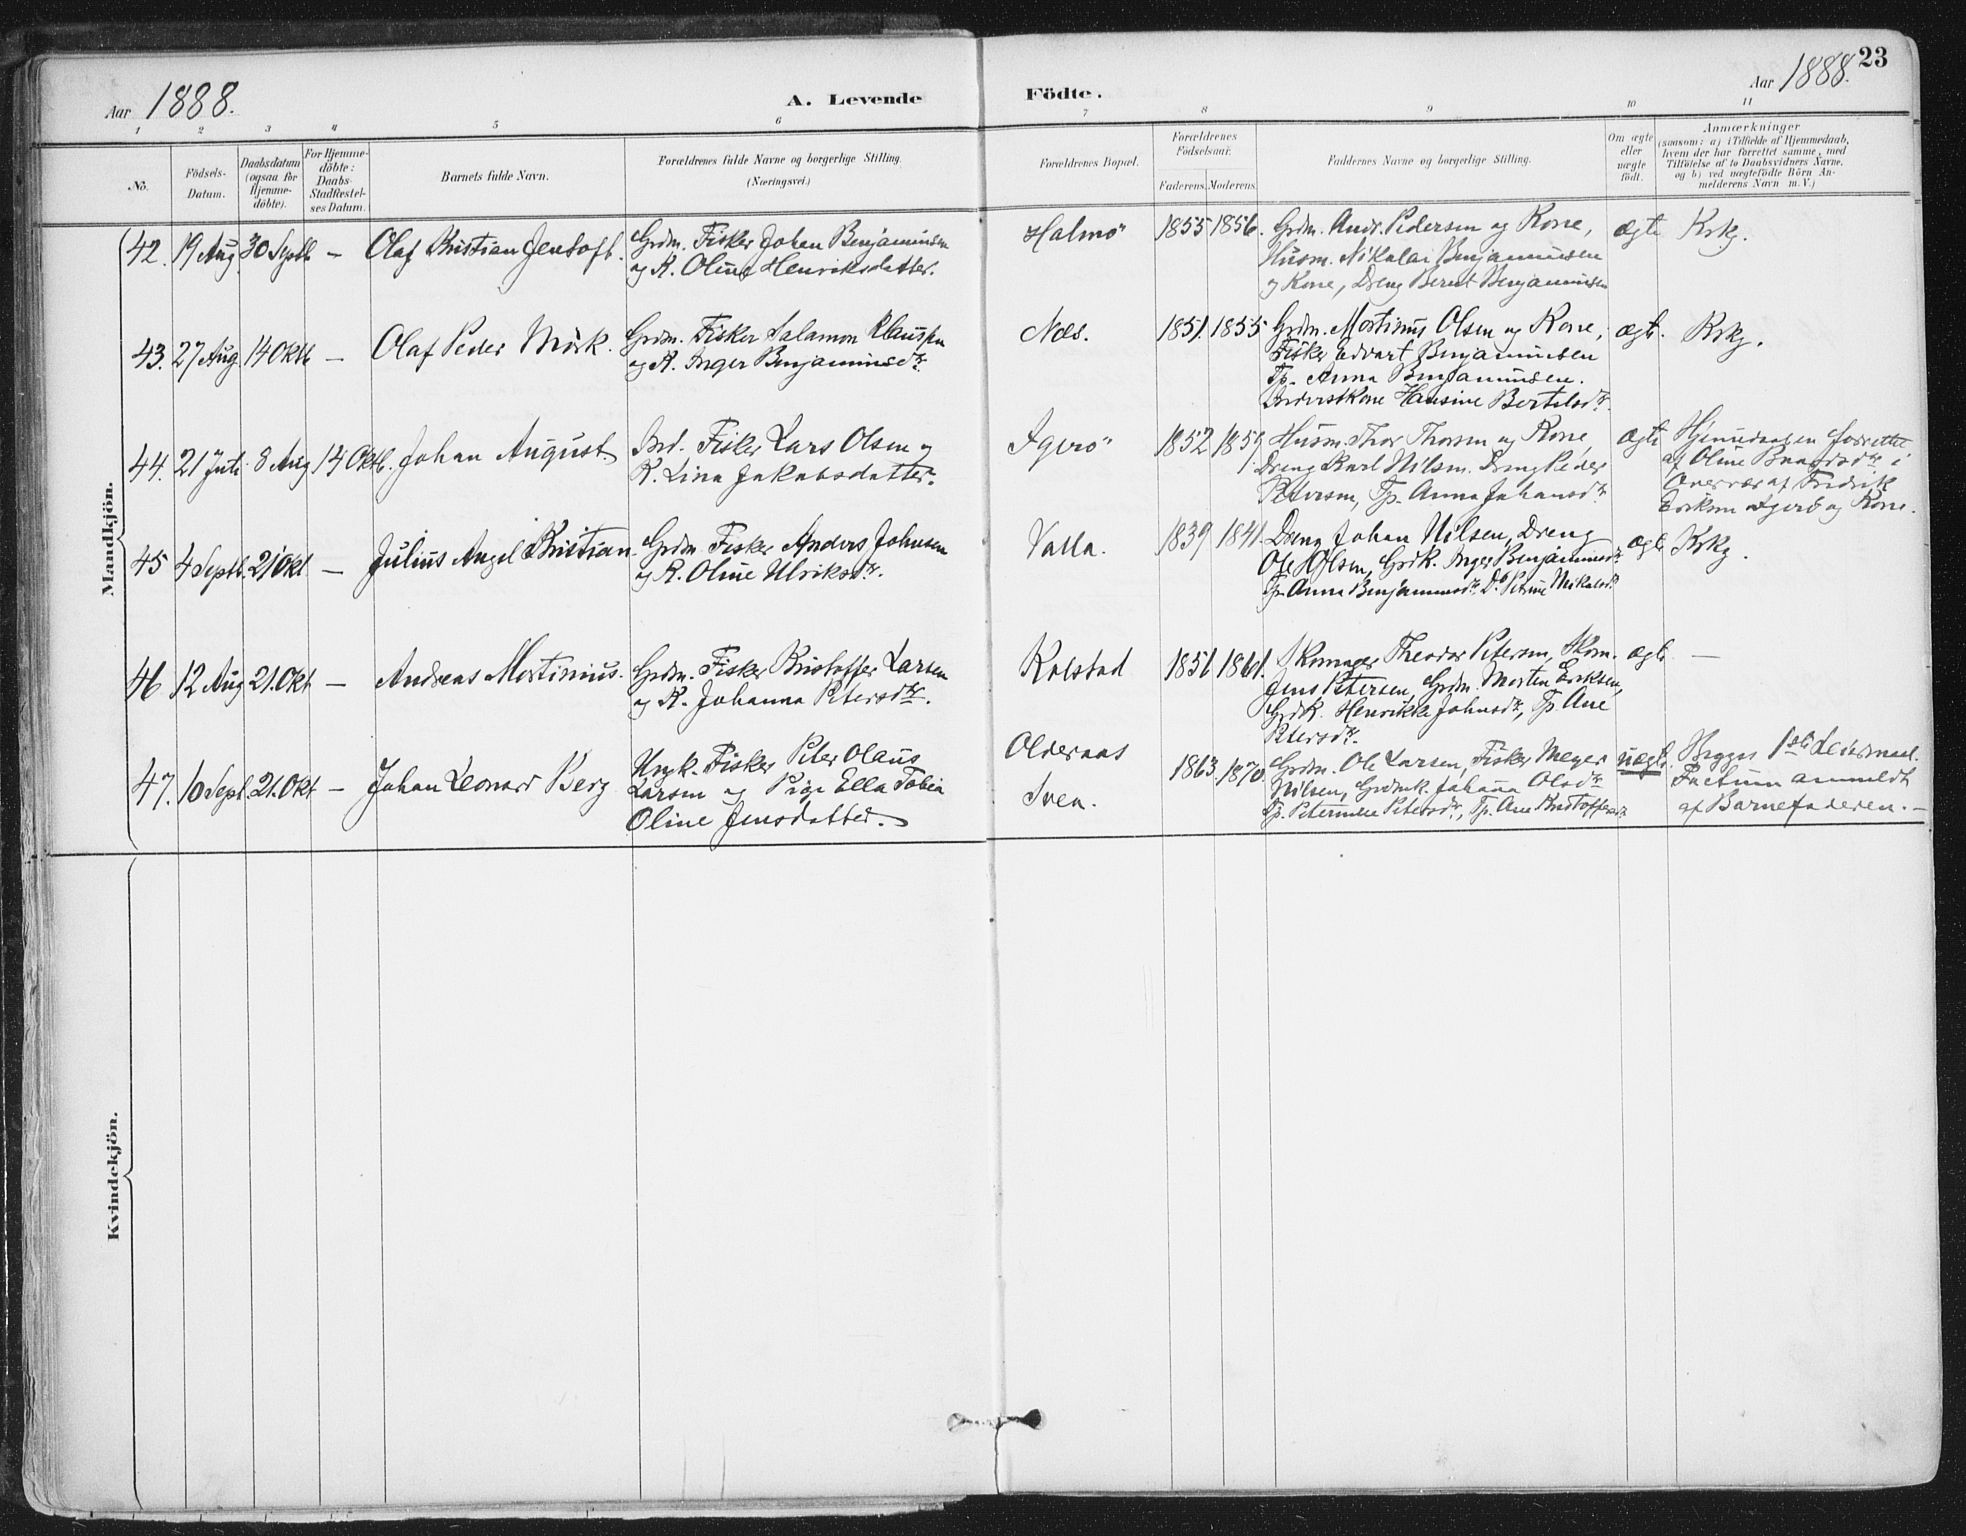 Aar 1888.
A. Levende Födte.
Aar 1888.
23
1 2 3 4 5 6 7 8 9 10 11
No.
Födsels-Datum.
Daabsdatum (ogsaa for Hjemme-döbte).
For Hjemme-döbte: Daabs-Stadfæstel-ses Datum.
Barnets fulde Navn.
Forældrenes fulde Navne og borgerlige Stilling.
(Næringsvei.)
Forældrenes Bopæl.
Forældrenes Födselsaar.
Faderens. Moderens.
Faddernes Navne og borgerlige Stilling.
Om ægte eller uægte födt.
Anmærkninger
(saasom: a) i Tilfælde af Hjemmedaab,
hvem der har forrettet samme, med
Tilföielse af to Daabsvidners Navne,
og b) ved uægtefödte Börn An-
melderens Navn m. V.)
Mandkjön.
42. 19 Aug 30 Septb — Olaf Kristian Jentoft. Grdm. Fisker Johan Benjaminsen Halmö 1855 1856. Grdm. Andr. Pedersen og Kone, ægte Krkg.
og K. Oline Henriksdatter. Husm. Nikolai Benjaminsen
og Kone, Dreng Bernt Benjaminsen
43. 27 Aug 14 Oktb — Olaf Peder Mörk. Grdm. Fisker Salamon Klaussen Næs. 1851. 1855 Grdm. Mortinus Olsen og Kone, ægte. Krkg.
og K. Inger Benjaminsdtr. Fisker Edvart Benjaminsen
Tp. Anna Benjaminsen.
Hansine Bertelsdtr.
44. 21 Juli 8 Aug 14 Oktb. Johan August Fisker Lars Olsen og Igerö 1852 1859. Husm. Thor Thorsen og Kone, ægte Hjemmedaaben forrettet
K. Lina Jakobsdatter. Dreng Karl Nilsen. Dreng Peder af Oline i
Petersen, Tp. Anna Johansdtr. Overvær af Fredrik
Eriksen Igerö og Kone.
45 4 Septb. 21 Okt — Julius Angel Kristian. Grdm. Fisker Anders Johnsen Valla. 1839 1841. Dreng Johan Nilsen, Dreng ægte Krkg.
og K. Oline Ulriksdtr. Ole Olsen, Grdk. Inger Benjaminsdtr.
Tp. Anna Benjaminsdtr. Do Petrine Mikalsdtr
46 12 Aug 21. Okt — Andreas Mortinius. Grdm. Fisker Kristoffer Larsen Kolstad 1851 1861. Skomager Theodor Petersen, Skom. ægte —
og K. Johanna Petersdtr. Jens Petersen, Grdm. Morten Eriksen,
Grdk. Henrikke Johnsdtr, Tp. Ane
Petersdtr.
47. 10 Sept. 21. Okt — Johan Leonard Berg Ungk. Fisker Peter Olaus Olderaas 1863. 1870. Grdm. Ole Larsen, Fisker Meyer uægte. Begges 1ste Leiermaal.
Larsen og Pige Ella Tobia Sven. Nilsen, Grdmk. Johanna Olsdtr Factum anmeldt
Oline Jensdatter. Tp. Petrine Petersdtr, Tp. Ane Kristoffersdtr af Barnefaderen. —
Kvindekjön.